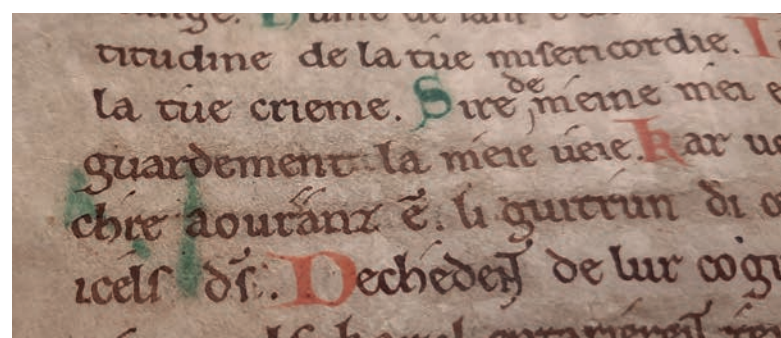 titudine de la tue misericordie.
la tue crieme. Sire, demeine mei e
guardement la meie ueie. Kar ue
chre aouranz ē. li guitrun di
icels ds̄. Decheden de lur cogi